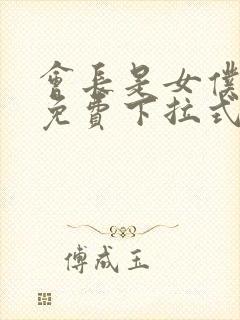 會長是女僕
免費下拉式
傅成玉